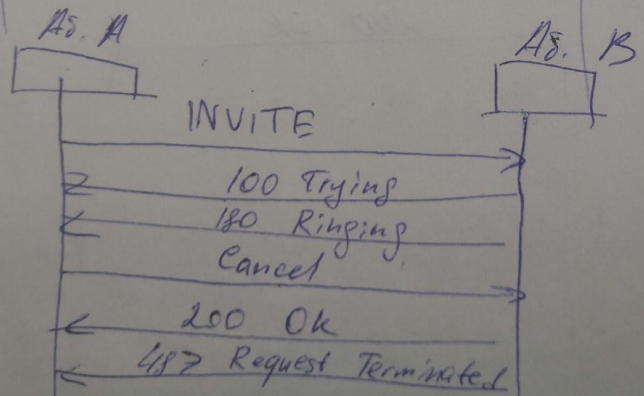 Аб. А
Аб. В
INVITE
100 Trying
180 Ringing
Cancel
200 Ok
487 Request Terminated